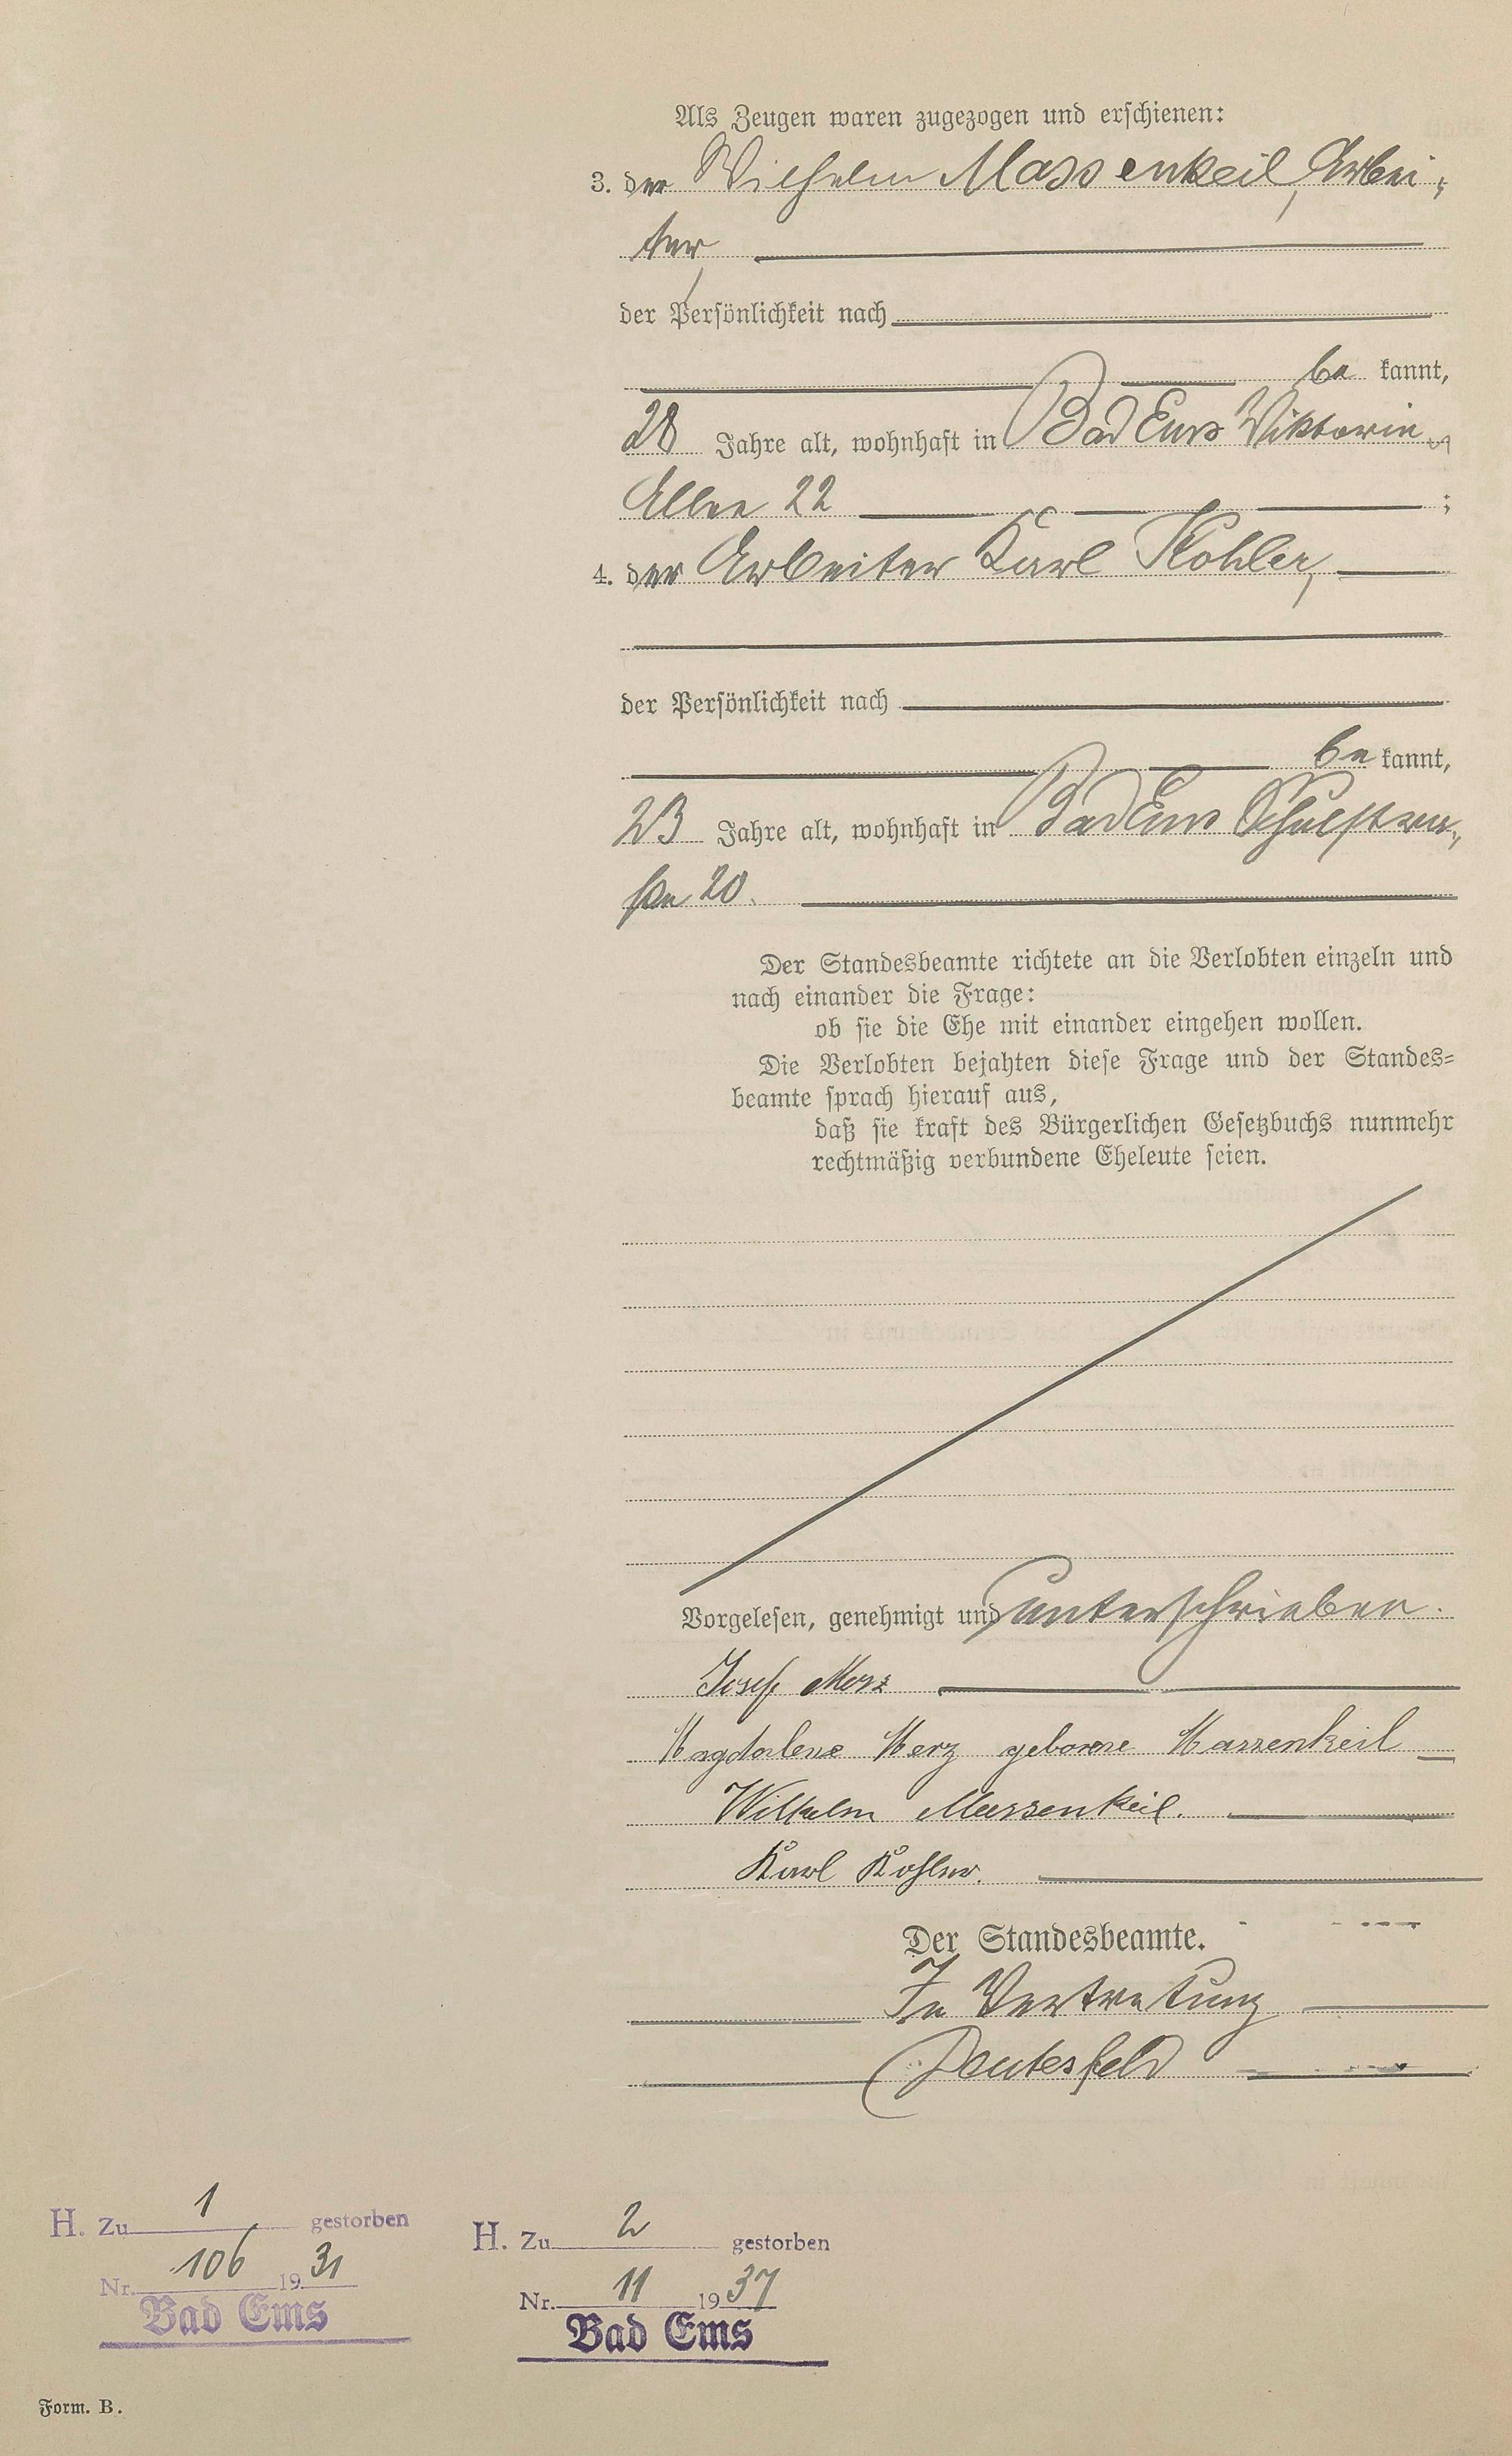 Als Zeugen waren zugezogen und erschienen:
3. der Wilhelm Massenkeil, Arbei-
ter,
der Persönlichkeit nach
be kannt,
28 Jahre alt, wohnhaft in Bad Ems Viktoria-
Allee 22 ;
4. der Arbeiter Karl Kohler,
der Persönlichkeit nach
be kannt,
23 Jahre alt, wohnhaft in Bad Ems Schulstra-
ße 20.
Der Standesbeamte richtete an die Verlobten einzeln und
nach einander die Frage:
ob sie die Ehe mit einander eingehen wollen.
Die Verlobten bejahten diese Frage und der Standes-
beamte sprach hierauf aus,
daß sie kraft des Bürgerlichen Gesetzbuchs nunmehr
rechtmäßig verbundene Eheleute seien.
Vorgelesen, genehmigt und unterschrieben.
Josef Merz
Magdalena Merz geborene Massenkeil
Wilhelm Massenkeil.
Karl Kohler.
Der Standesbeamte.
In Vertretung
H. Zu 1 gestorben
Nr. 106 1931
Bad Ems
H. Zu 2 gestorben
Nr. 11 1937
Bad Ems
Form. B.